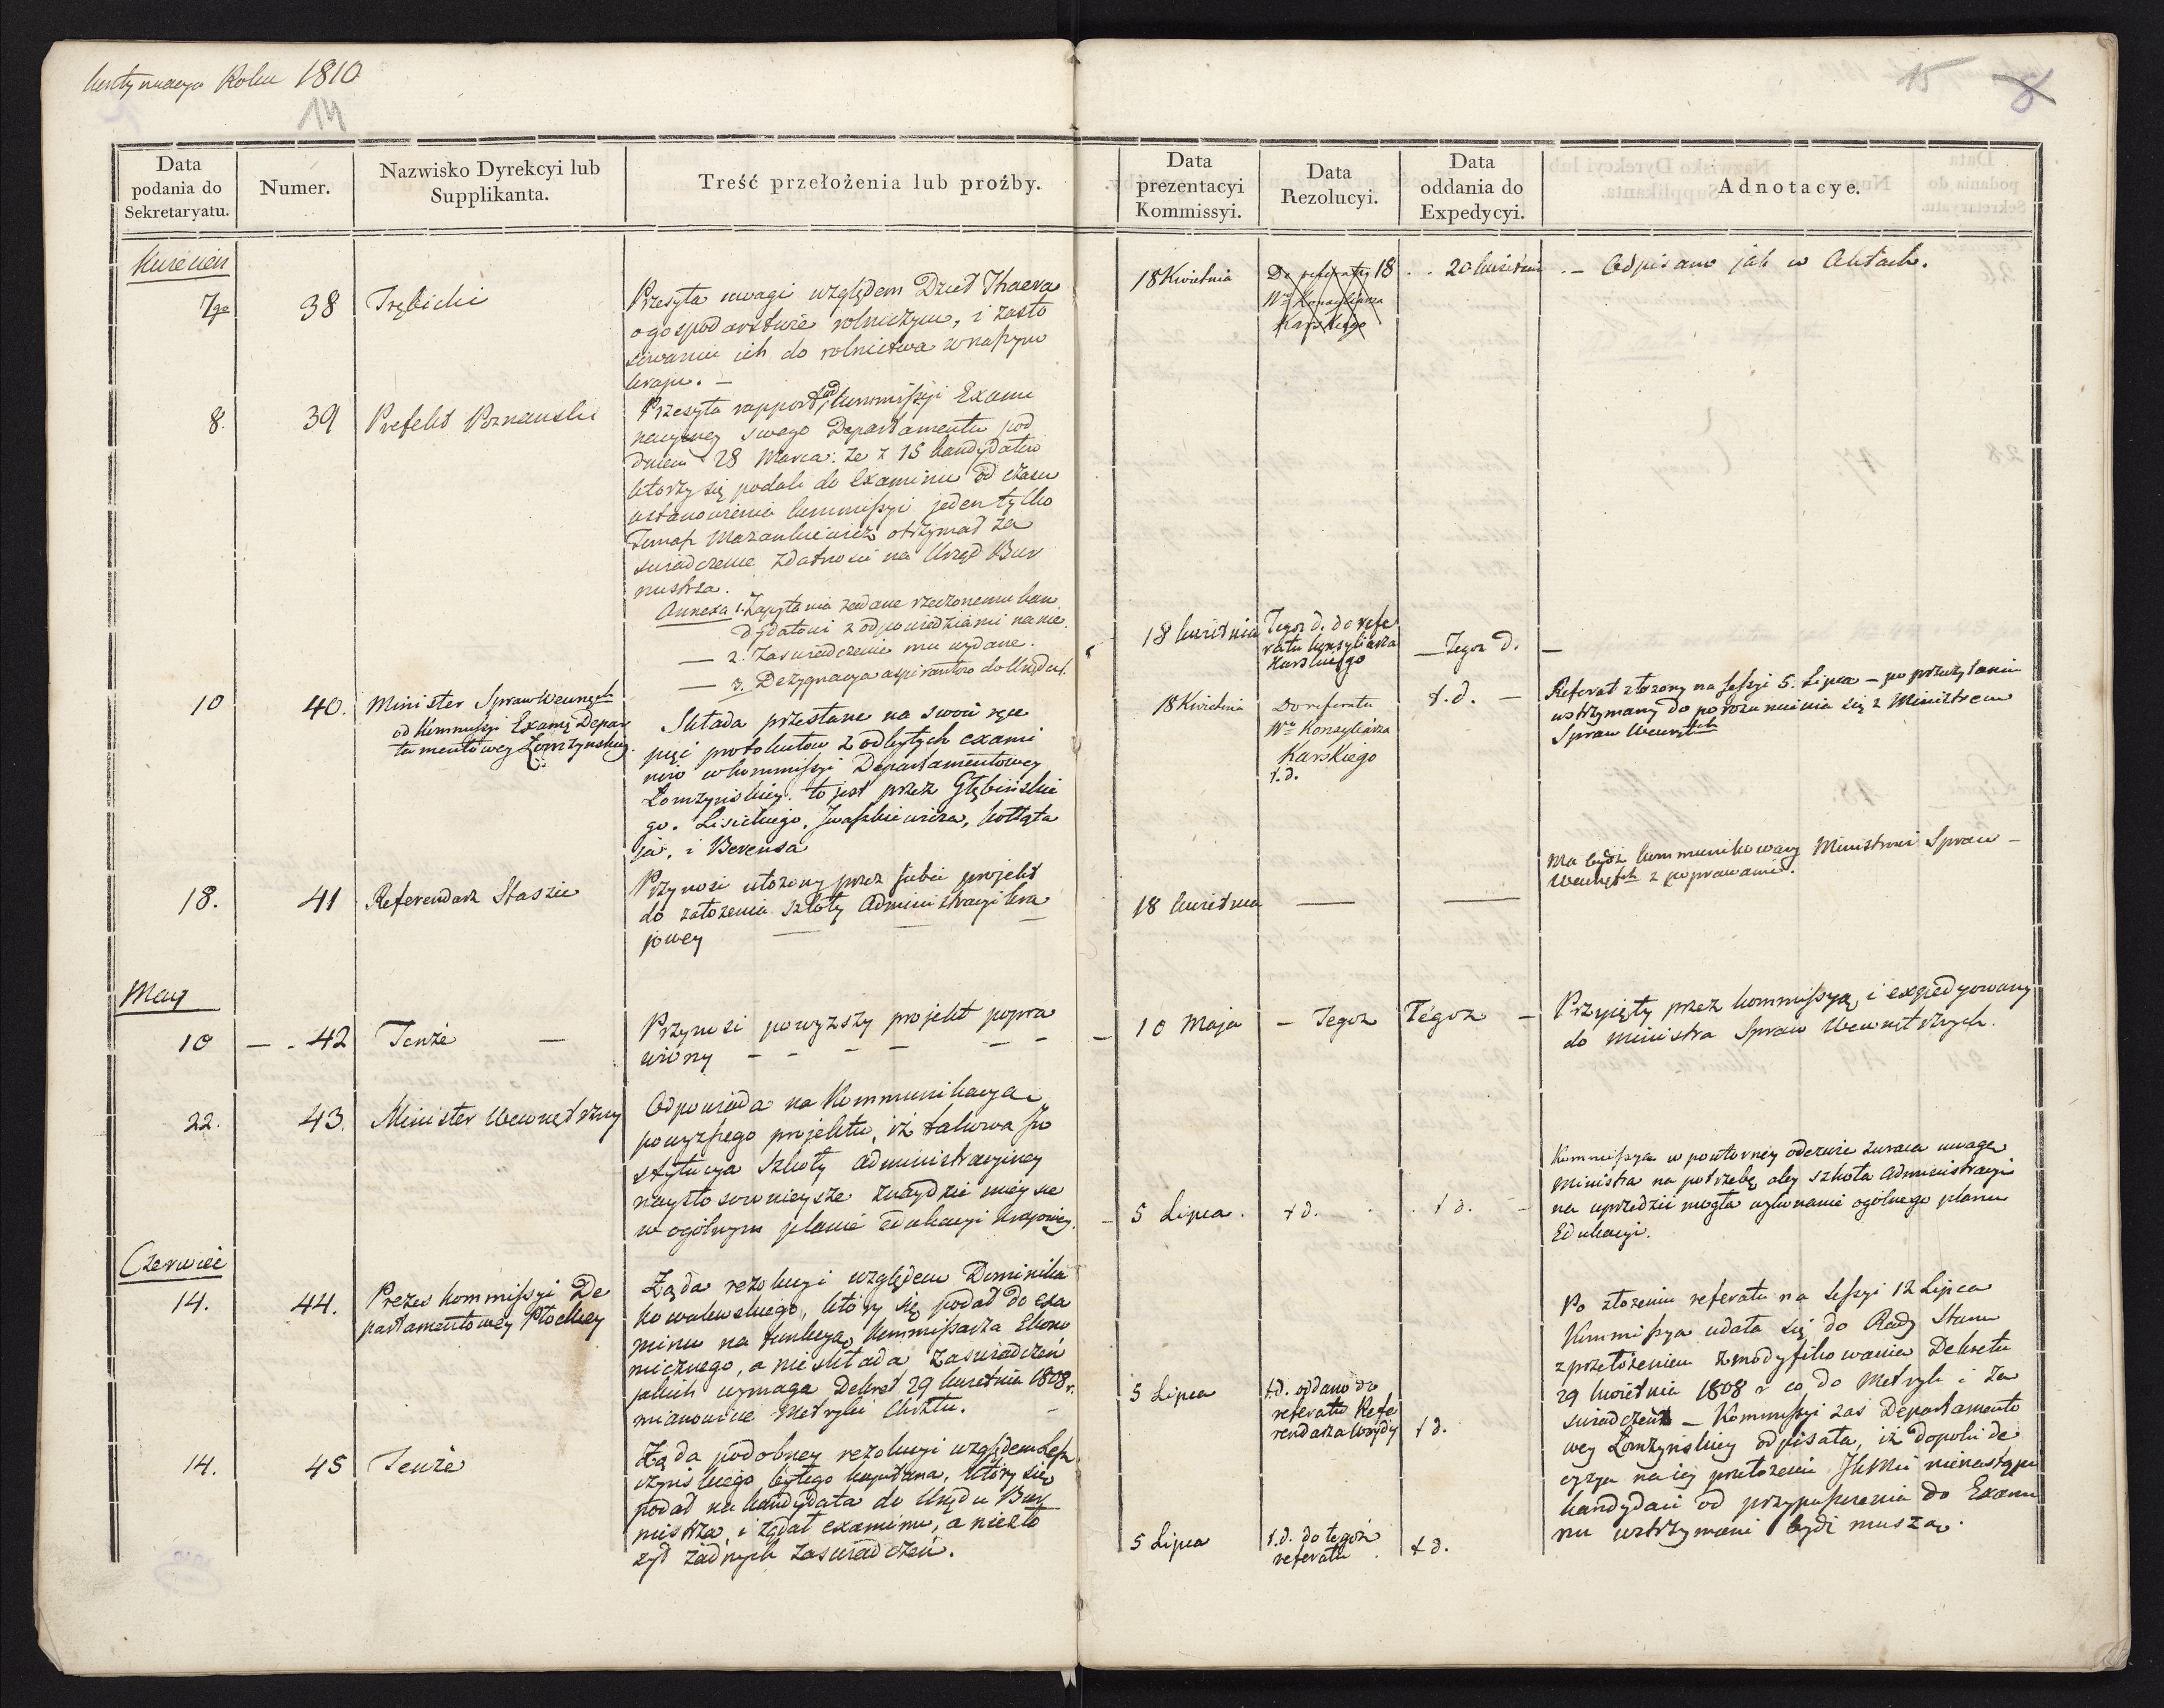 kontynuacya Roku 1810
14
15
8
Data
podania do
Sekretaryatu.
Numer.
Nazwisko Dyrekcyi lub
Supplikanta.
Treść przełożenia lub proźby.
Data
prezentacyi
Kommissyi.
Data
Rezolucyi.
Data
oddania do
Expedycyi.
Adnotacye.
Kwiecień
7go
38
Trębicki
Przesyła uwagi względem Dzieł Thaera
o gospodarstwie rolniczym, i zasto
sowaniu ich do rolnictwa w naszym
kraju. —
18 Kwietnia
Do referatu 18
Wo Konsyliarza
Karskiego
20 kwietnia
— Odpisano jak w Aktach.
8.
39
Prefekt Poznański
Przesyła rapport kommissyi Exami
nacyiney swego Departamentu pod
dniem 28 Marca: że z 15 kandydatów
którzy się podali do Examinu od czasu
ustanowienia kommissyi jeden tylko
Tomasz Mazankiewicz otrzymał za
świadczenie zdatności na Urząd Bur
mistrza.
Annexa 1. Zapytania zadane rzeczonemu kan
dydatowi z odpowiedziami na nie.
— 2. Zaswiadczenie mu wydane.
— 3. Dezygnacya aspirantów do Urzędu.
18 kwietnia
Tegoż d. do refe
ratu konsyliarza
Karskiego
— Tegoż d.
—
10
40.
Minister Spraw Wewnętch
od Kommissyi Exami: Depar
tamentowey Łomżyńskiey.
Składa przesłane na swoie ręce
pięć protokułów z odbytych exami
nów w kommissyi Departamentowey
Łomżyńskiey. to jest przez Głębińskie
go. Lisickiego, Iwaszkiewicza, kołłąta
ja, i Berensa
18 Kwietnia
Do referatu
Wo Konsyliarza
Karskiego
t. d.
t. d. —
Referat złożony na sessyi 5. Lipca — po przeczytaniu
wstrzymany do porozumienia się z Ministrem
Spraw Wewnętch
18.
41
Referendarz Staszic
Przynosi ułożony przez siebie projekt
do założenia szkoły Administracyi kra
jowey
18 kwietnia
Ma bydź kommunikowany Ministrowi Spraw
Wewnętch z poprawami.
May
10
42
Tenże —
Przynosi powyższy projekt popra
wiony
10 Maja
— Tegoż
Tegoż —
Przyięty przez kommissyą, i expedyowany
do ministra Spraw Wewnętrznych.
22.
43.
Minister Wewnętrzny
Odpowiada na Kommunikacyą
powyższego projektu, iż takowa In
stytucya szkoły administracyiney
naystosownieysze znaydzie mieysce
w ogólnym planie edukacyi kraiowey.
5 Lipca.
t d.
t d.
Kommissya w powtorney odezwie zwraca uwagę
Ministra na potrzebę, aby szkoła administracyi
na uprzedzić mogła wykonanie ogólnego planu
Edukacyi.
Czerwiec
14.
44.
Prezes kommissyi De
partamentowey Płockiey
Żąda rezolucyi względem Dominika
kowalewskiego, który się podał do exa
minu na funkcyą kommissarza Ekono
micznego, a nie składa zaswiadczeń
jakich wymaga Dekret 29 kwietnia 1808 r.
mianowicie Metryki Chrztu.
5 Lipca
t.d. oddano do
referatu Refe
rendarza Woydy
t d.
Po złożeniu referatu na sessyi 12 Lipca
Kommissya udała się do Rady Stanu
z przełożeniem zmodyfikowania Dekretu
29 kwietnia 1808 r. co do Metryk i za
swiadczeń — Kommissyi zaś Departamento
wey Łomżyńskiey odpisała, iż dopoki de
cyzya na iey przełożenie JKMci nienastąpi
kandydaci od przypuszczenia do Exami
nu wstrzymani bydź muszą.
14.
45
Tenże
Żąda podobney rezolucyi względem
czyńskiego byłego kapitana, który się
podał na kandydata do Urzędu Bur
mistrza, i zdał examinu, a niezło
żył żadnych zaswiadczeń.
5 Lipca
t.d. do tegoż
referatu
t d.